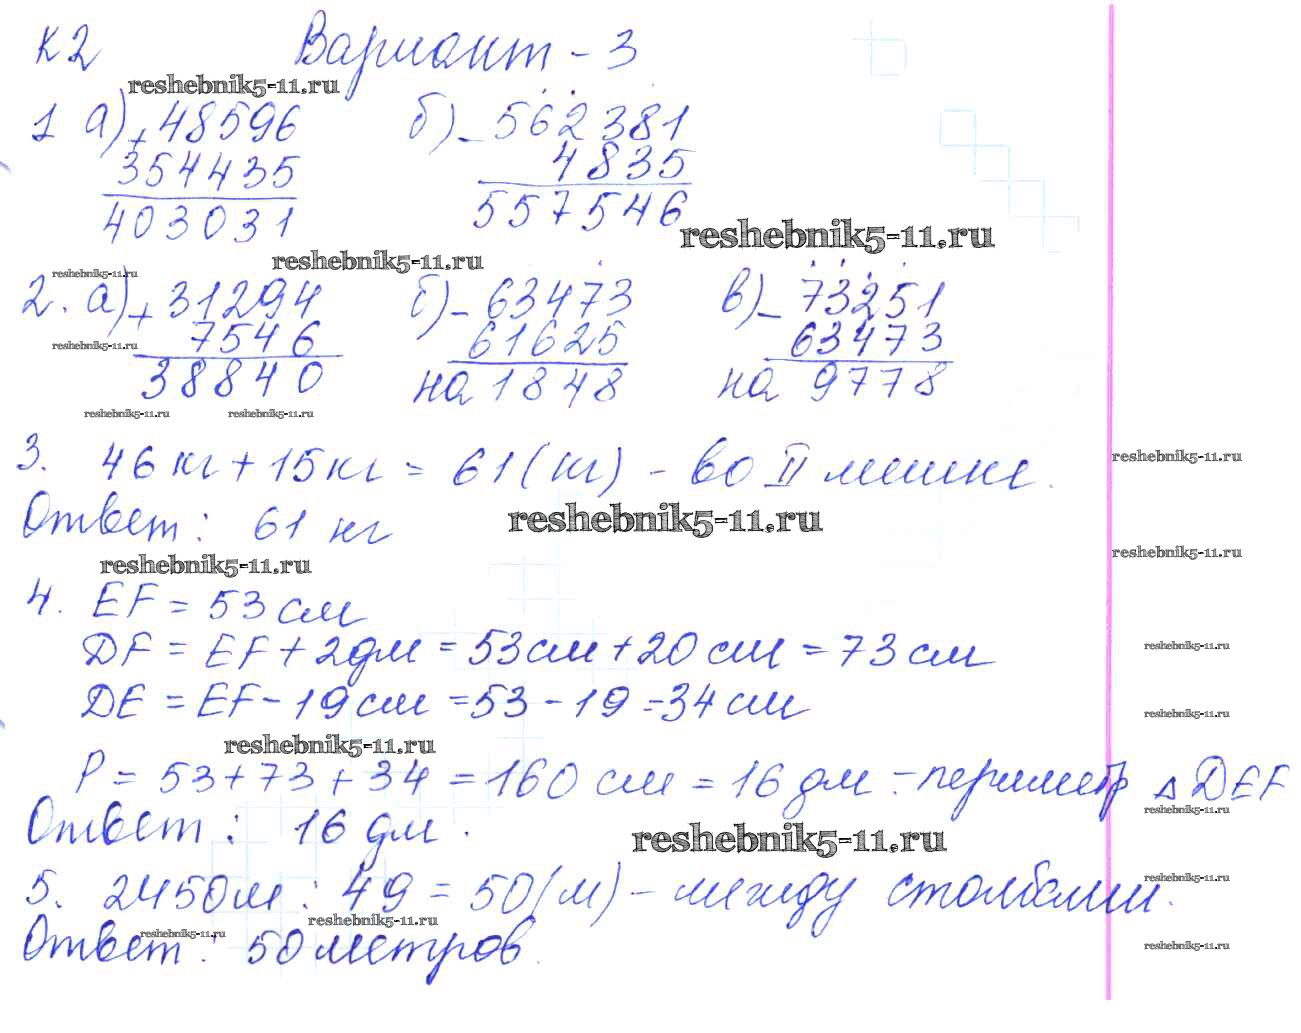 К2 Вариант - 3
reshebnik5-11.ru
1 а) + 48596 б) - 562381
354435 4835
403031 557546
reshebnik5-11.ru
reshebnik5-11.ru
reshebnik5-11.ru
2. а) + 31294 б) - 63473 в) - 73251
7546 61625 63473
reshebnik5-11.ru
38840 на 1848 на 9778
reshebnik5-11.ru reshebnik5-11.ru
3. 46 кг + 15 кг = 61 (кг) - во II мешке.
reshebnik5-11.ru
Ответ: 61 кг
reshebnik5-11.ru
reshebnik5-11.ru
reshebnik5-11.ru
4. EF = 53 см
DF = EF + 2 дм = 53 см + 20 см = 73 см
reshebnik5-11.ru
DE = EF - 19 см = 53 - 19 = 34 см
reshebnik5-11.ru
reshebnik5-11.ru
P = 53 + 73 + 34 = 160 см = 16 дм - периметр Δ DEF
reshebnik5-11.ru
Ответ: 16 дм.
reshebnik5-11.ru
5. 2450 м : 49 = 50 (м) - между столбами.
reshebnik5-11.ru
reshebnik5-11.ru
reshebnik5-11.ru
Ответ: 50 метров.
reshebnik5-11.ru